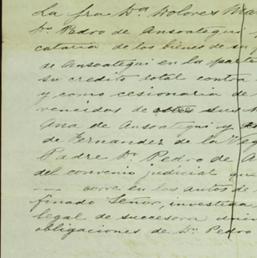 La Sra Dª Dolores Ma
Dn Pedro de Ansoategui
cataria de los bienes de su p
de Ansoategui en la parte
su crédito total contra
y como cesionaria de
vencidos de estos sus
Ana de Ansoategui y
de Fernandez de la Veg
Padre Dn Pedro de A
del convenio judicial que
corre en los autos de
finado Señor, investida
legal de sucesora
obligaciones de Dn Pedro